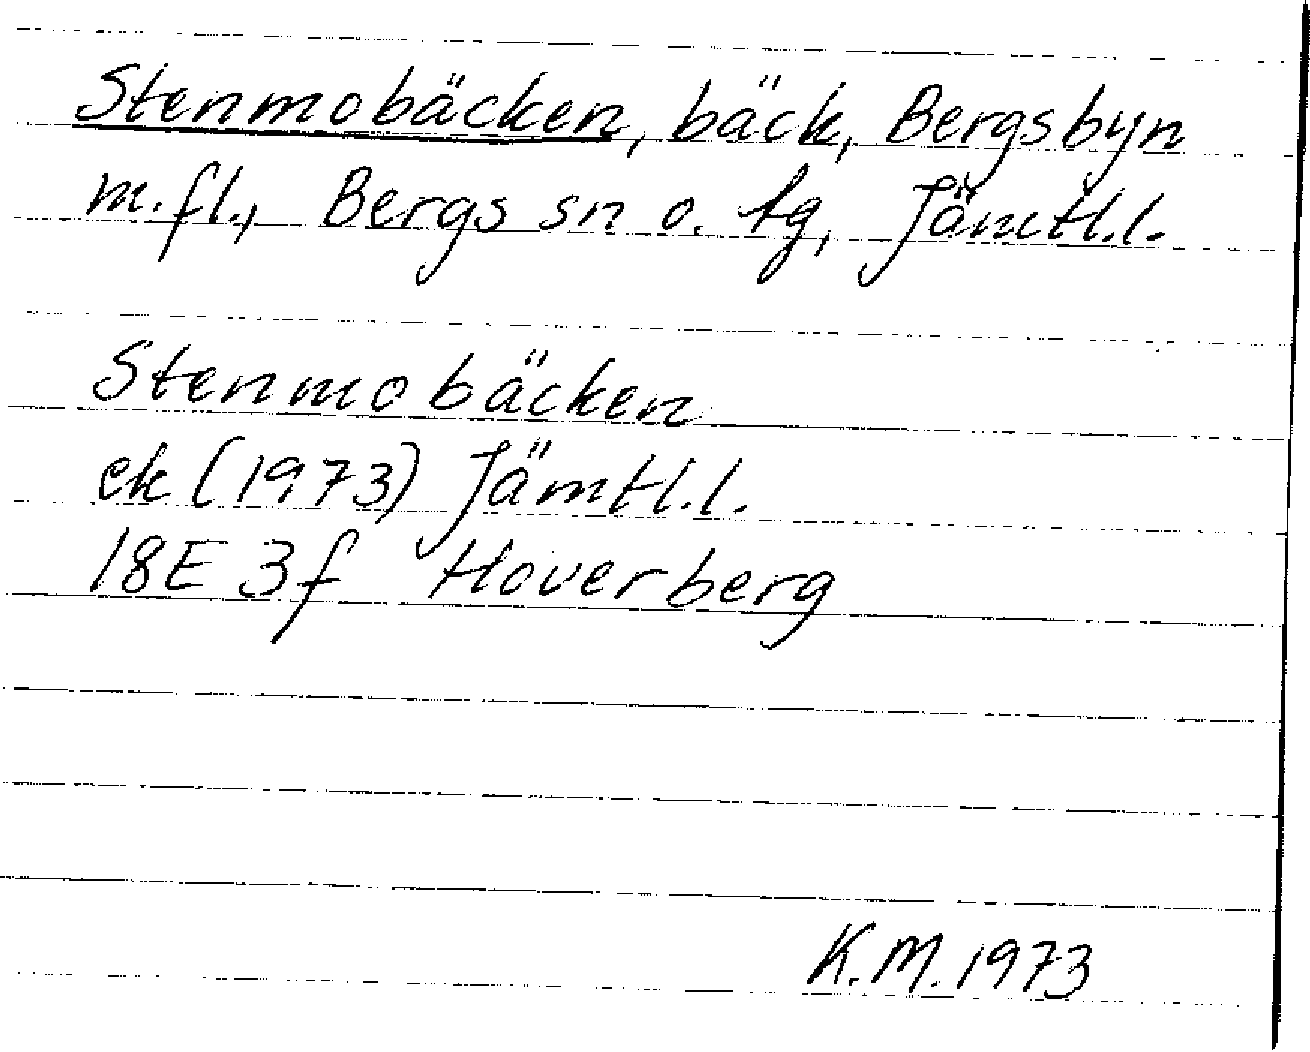 Stenmobäcken, bäck, Bergsbyn
m.fl., Bergs sn o. tg, Jämtl.l.
Stenmobäcken
ek (1973) Jämtl.l.
18E 3f Hoverberg
K.M. 1973